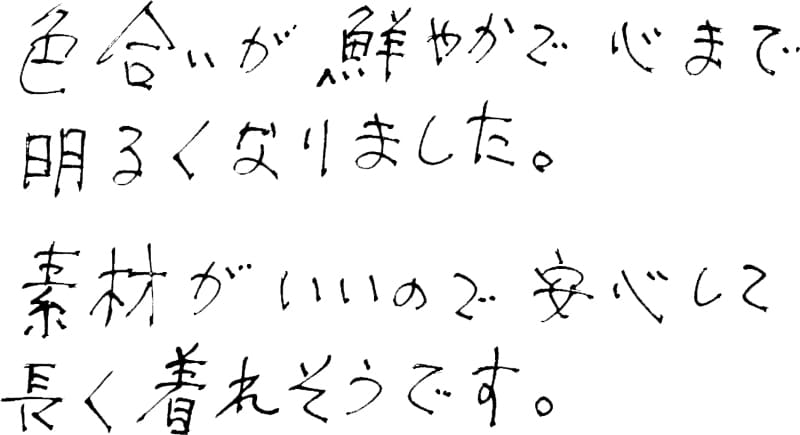 色合いが鮮やかで心まで
明るくなりました。
素材がいいので安心して
長く着れそうです。